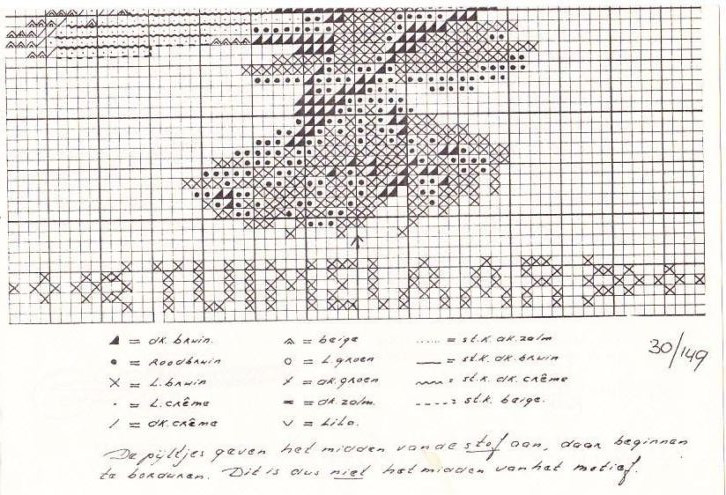 TUIMELAAR
dk. bruin.
Roodbruin
L. bruin
L. crême
dk. crême
beige
L. groen
dk. groen
dk. zalm.
Lila.
st.k. dk. zalm
st.k. dk. bruin
st.k. dk. crême
st.k. beige.
30/149
De pijltjes geven het midden van de stof aan, daar beginnen
te borduren. Dit is dus niet het midden van het motief.